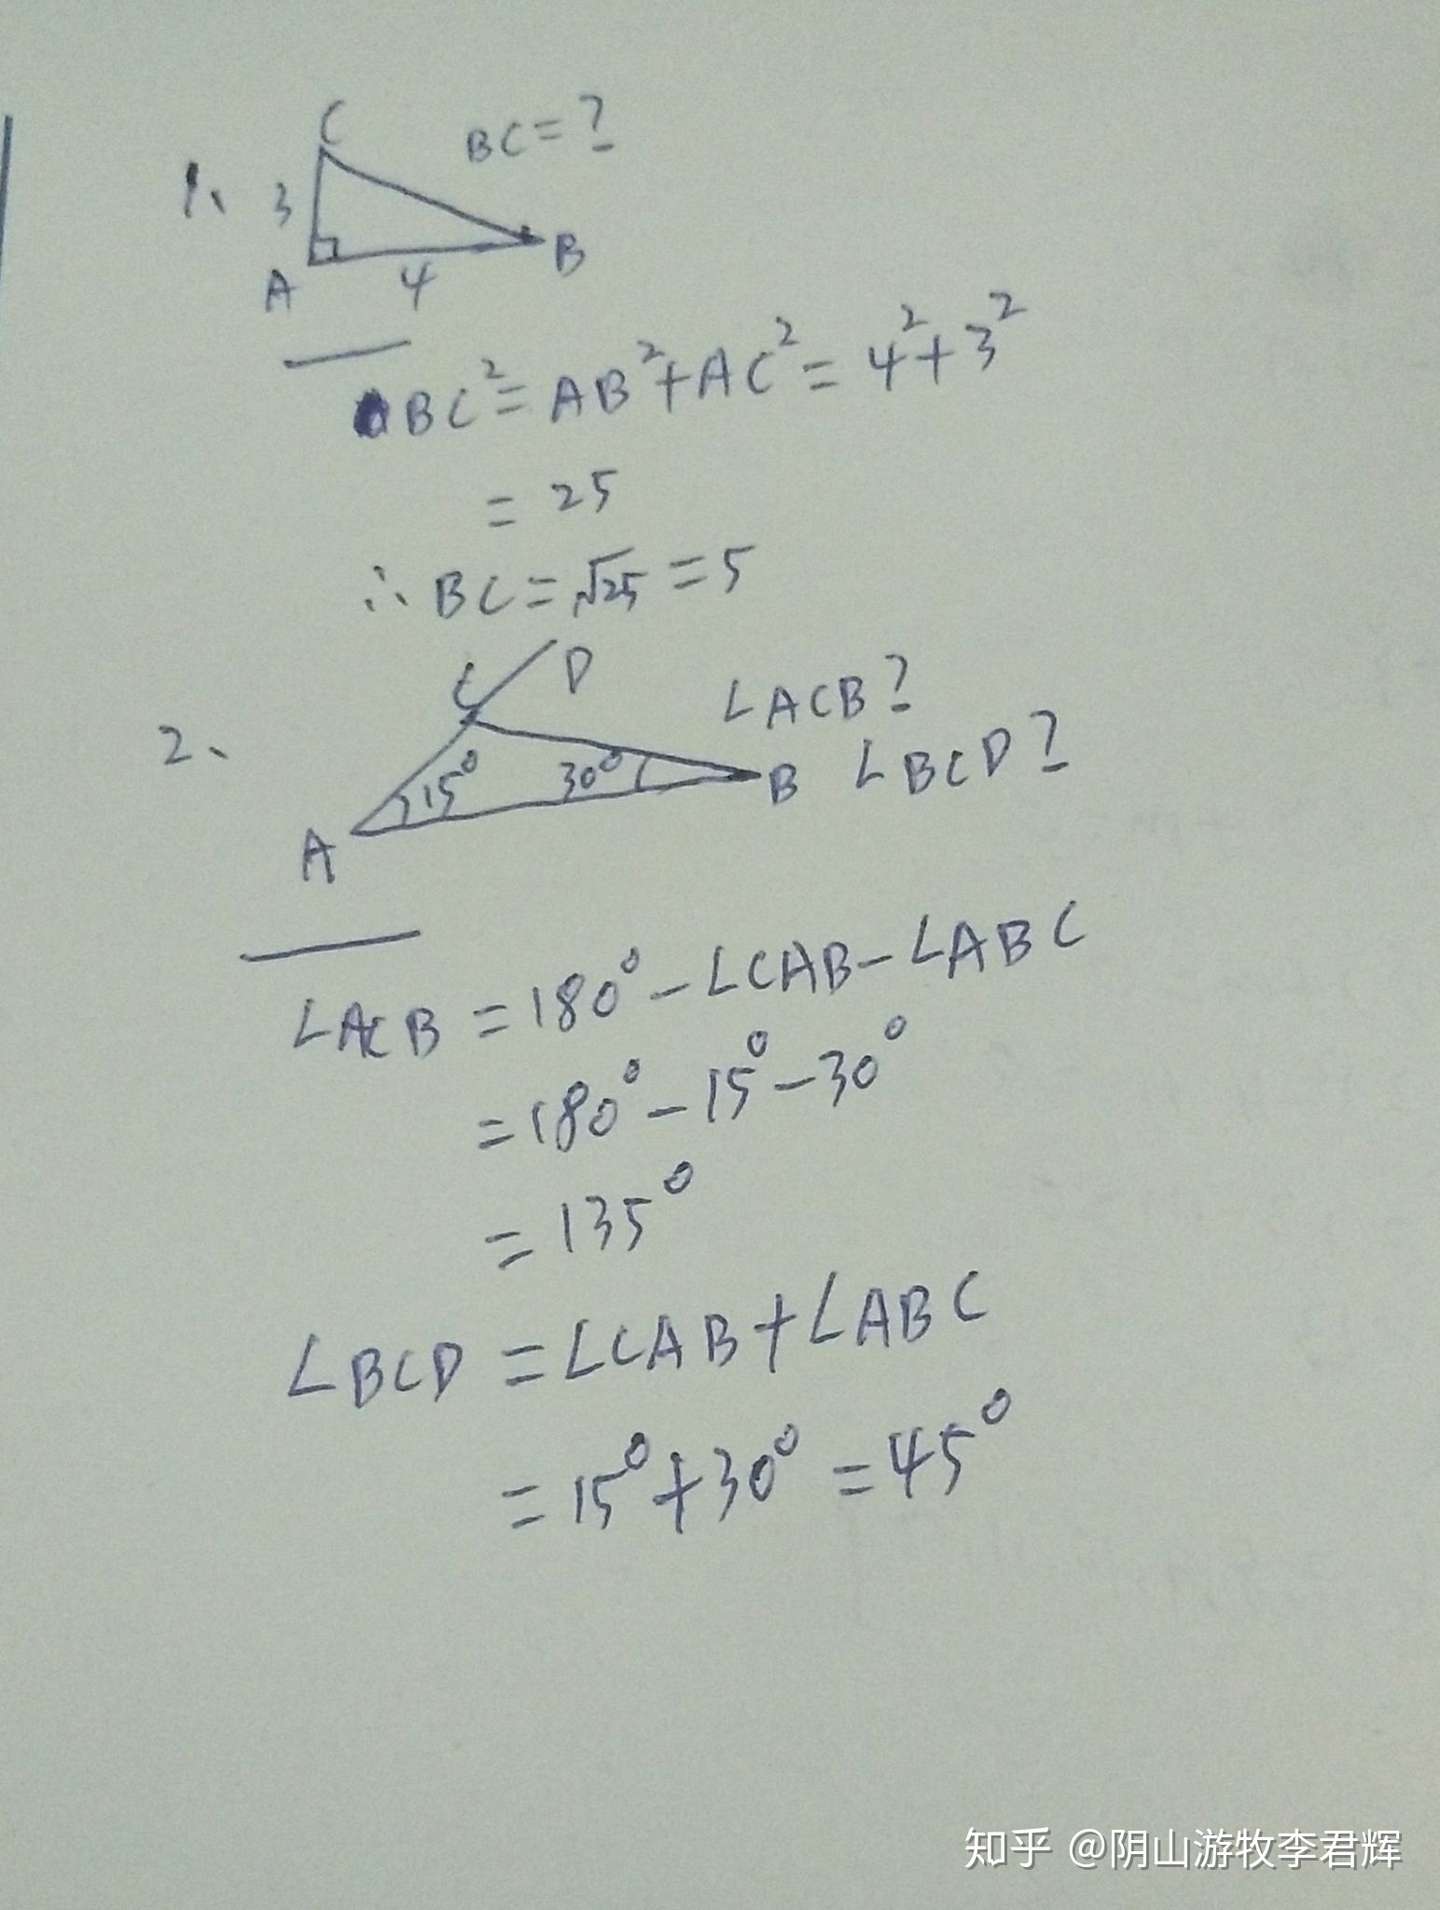 C BC=?
1、 3
A 4 B
BC²=AB²+AC²=4²+3²
=25
∴BC=√25=5
C D ∠ACB?
2、 15° 30° B ∠BCD?
A
∠ACB=180°-∠CAB-∠ABC
=180°-15°-30°
=135°
∠BCD=∠CAB+∠ABC
=15°+30°=45°
知乎 @阴山游牧李君辉